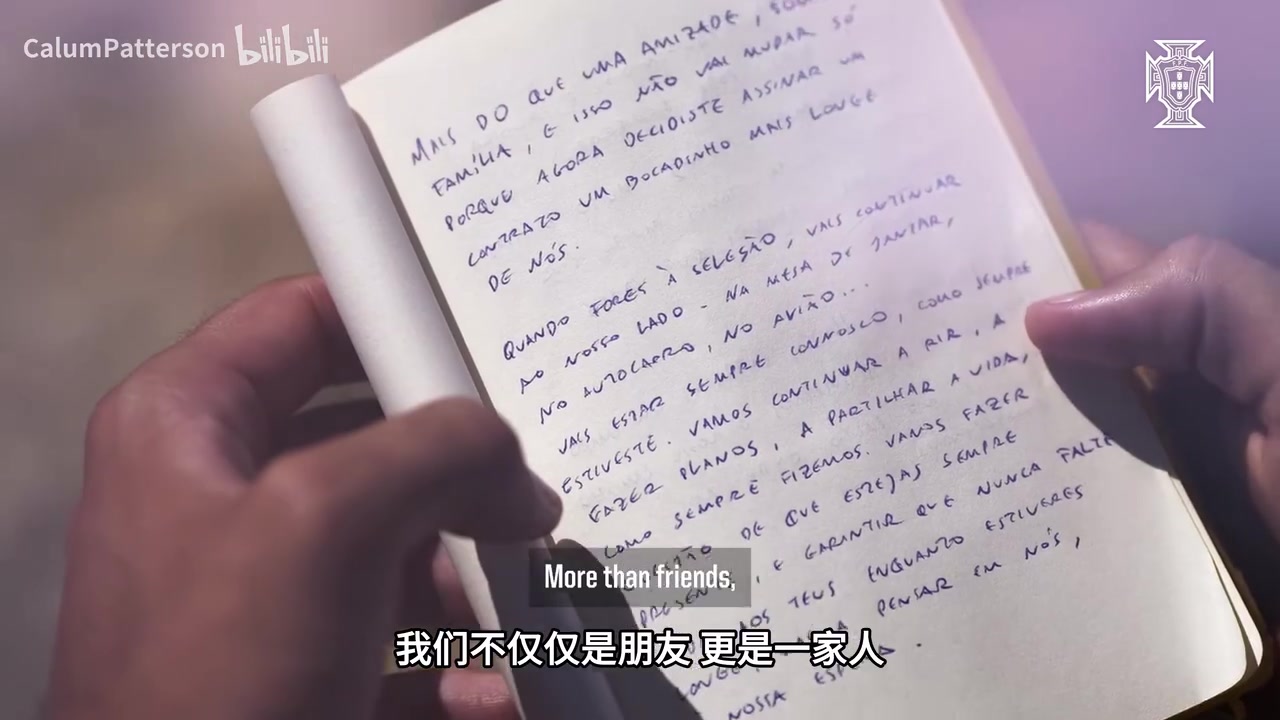 CalumPatterson bilibili
MAIS DO QUE UMA AMIZADE,
FAMÍLIA, E ISSO NÃO VAI MUDAR SÓ
PORQUE AGORA DECIDISTE ASSINAR UM
CONTRATO UM BOCADINHO MAIS LONGE
DE NÓS.
QUANDO FORES À SELEÇÃO, VAIS CONTINUAR
AO NOSSO LADO - NA MESA DE JANTAR,
NO AUTOCARRO, NO AVIÃO...
VAIS ESTAR SEMPRE CONNOSCO, COMO SEMPRE
ESTIVESTE. VAMOS CONTINUAR A RIR, A
FAZER PLANOS, A PARTILHAR A VIDA,
COMO SEMPRE FIZEMOS. VAMOS FAZER
DE QUE ESTEJAS SEMPRE
E GARANTIR QUE NUNCA FALTE
AOS TEUS ENQUANTO ESTIVERES
PENSAR EM NÓS,
NOSSA
More than friends,
我们不仅仅是朋友 更是一家人